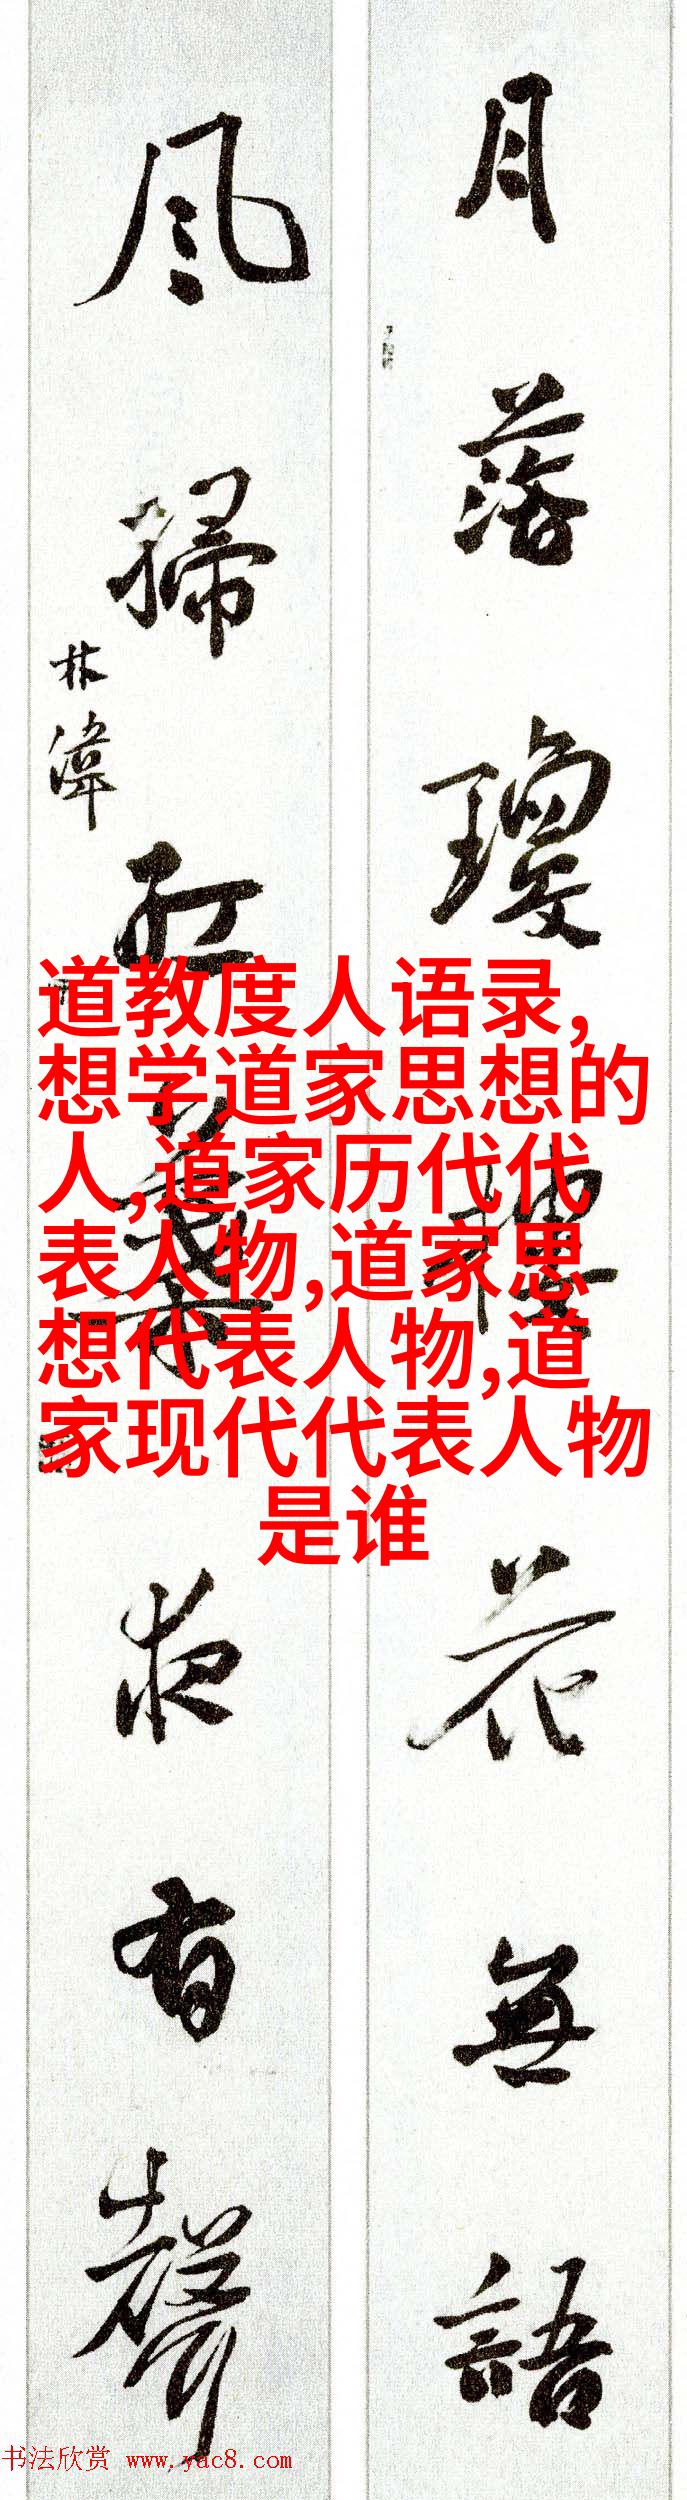 月落瓊樓花無語
風掃紅葉夜有聲
林偉
道教度人语录,
想学道家思想的
人,道家历代代
表人物,道家思
想代表人物,道
家现代代表人物
是谁
书法欣赏 www.yac8.com